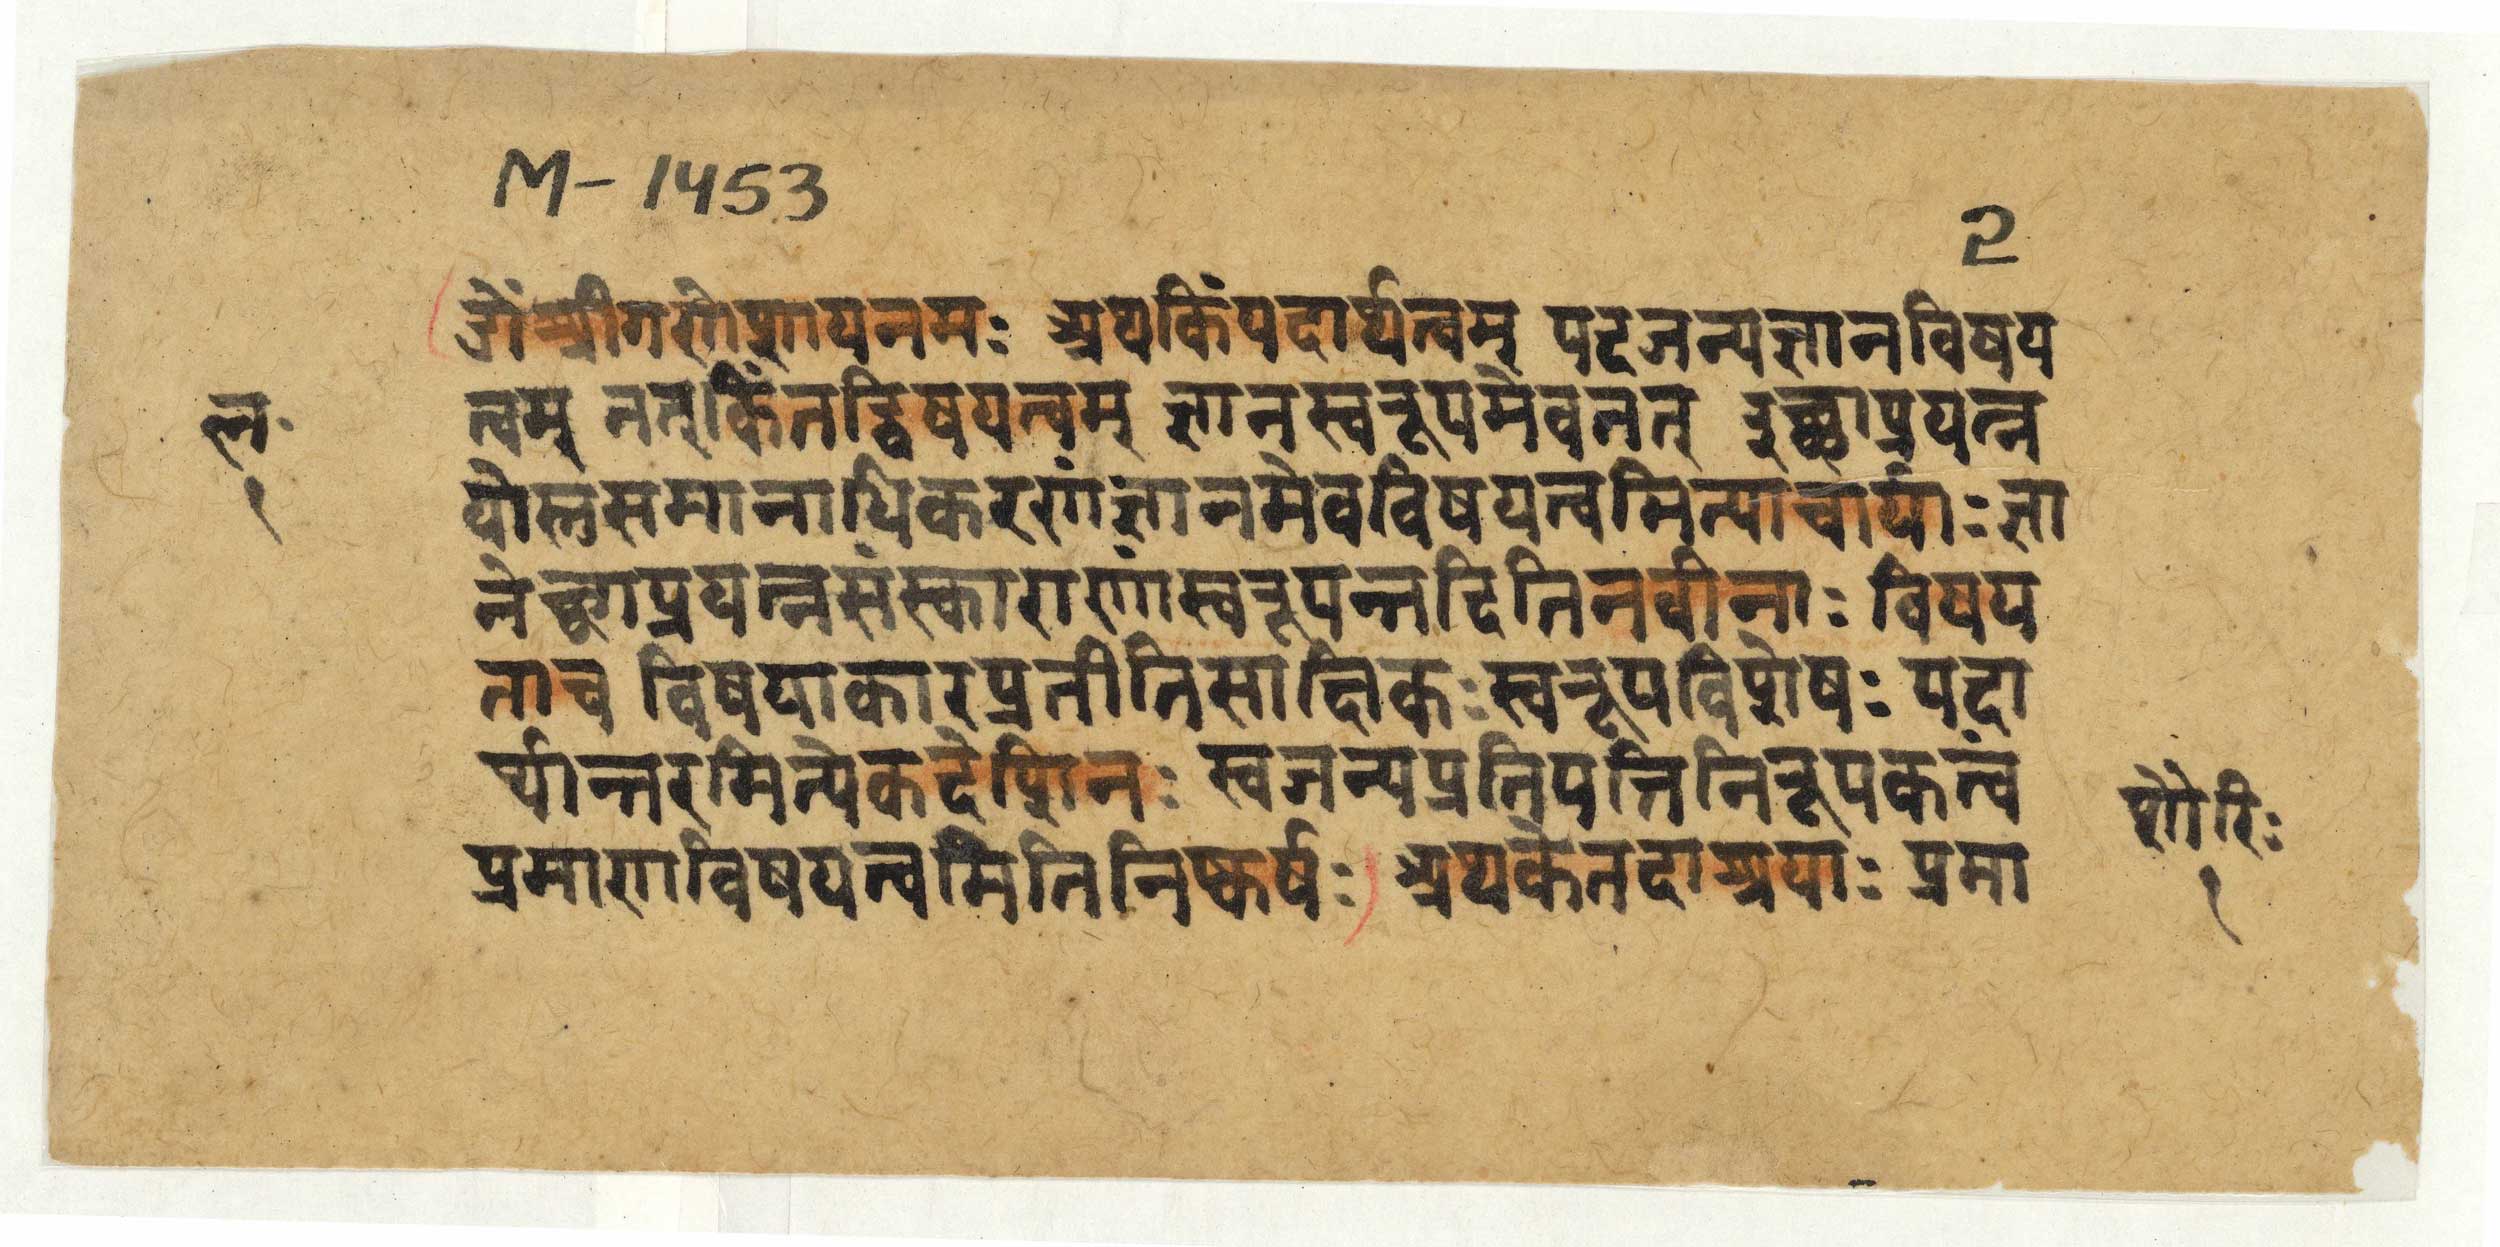 M-1453
2
ओं श्रीगणेशायनमः अथकिंपदार्थत्वम् पदजन्यज्ञानविषय
त्वम् तत्किंतद्विषयत्वम् ज्ञानस्वरूपमेवतत् इच्छाप्रयत्न
योस्तुसमानाधिकरणंज्ञानमेवविषयत्वमित्याचार्याः ज्ञा
नेच्छाप्रयत्नसंस्काराणांस्वरूपन्तदितिनवीनाः विषय
ताच विषयाकारप्रतीतिसाक्षिकः स्वरूपविशेषः पदा
र्थान्तरमित्येकदेशिनः स्वजन्यप्रतिपत्तिनिरूपकत्वं
प्रमाणविषयत्वमितिनिष्कर्षः अथकेतदाश्रयाः प्रमा
ल॰
१
शौरिः
१